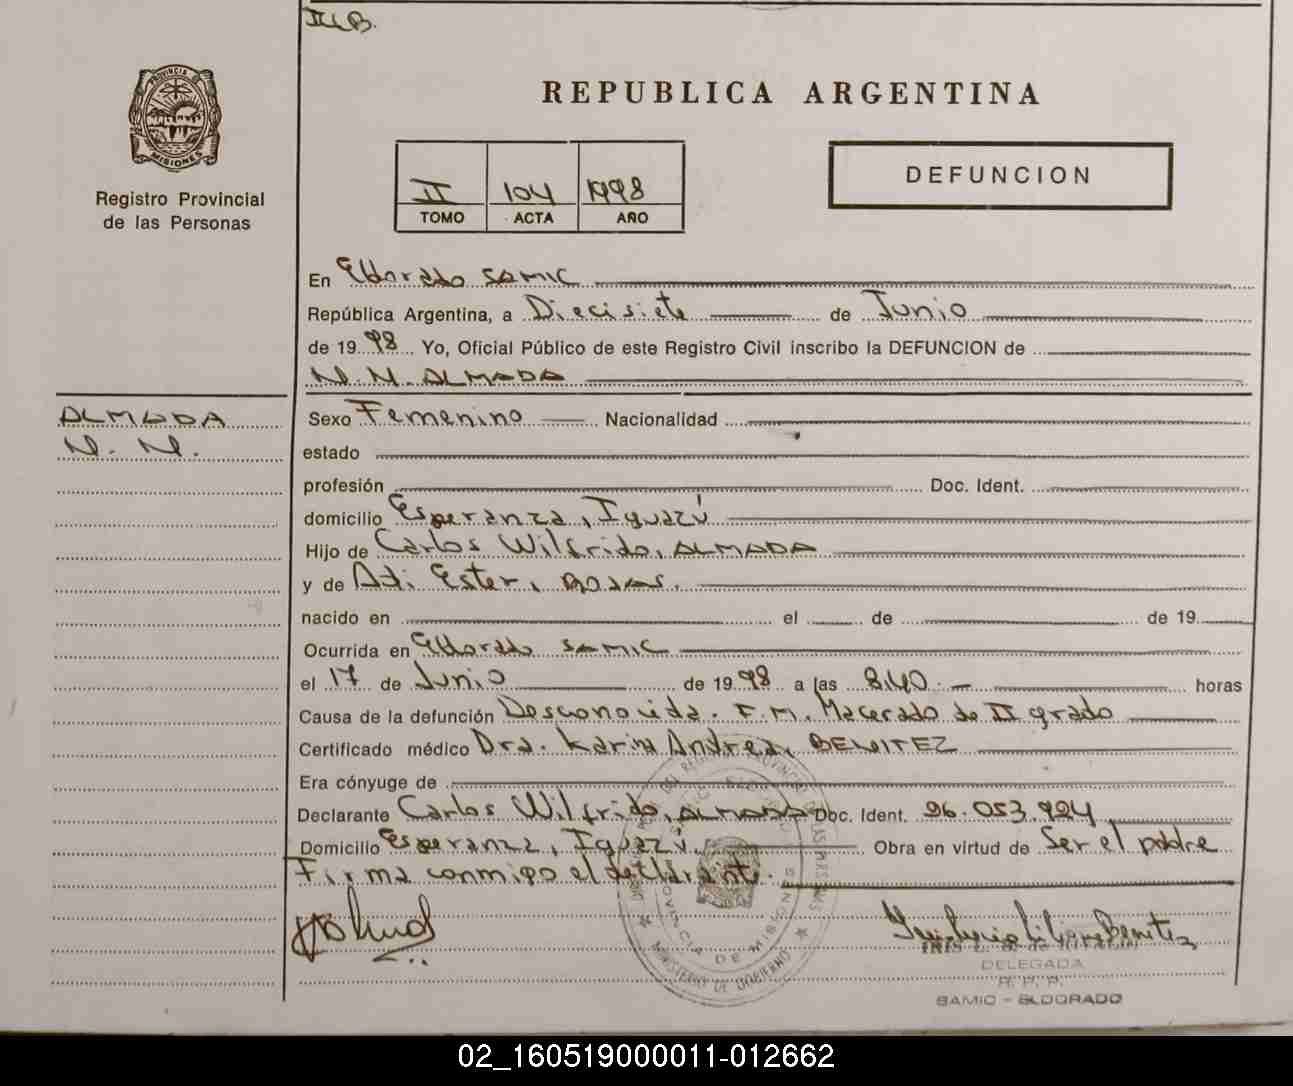 REPUBLICA ARGENTINA
PROVINCIA DE
MISIONES
Registro Provincial
de las Personas
II 104 1998
TOMO ACTA AÑO
DEFUNCION
En Eldorado SAMIC
República Argentina, a Diecisiete de Junio
de 1998 Yo, Oficial Público de este Registro Civil inscribo la DEFUNCION de
N.N. ALMADA
ALMADA
N. N.
Sexo Femenino Nacionalidad
estado
profesión Doc. Ident.
domicilio Esperanza, Iguazú
Hijo de Carlos Wilfrido, ALMADA
y de Adi Ester, ROJAS.
nacido en el de de 19
Ocurrida en Eldorado SAMIC
el 17 de Junio de 1998 a las 8.40.- horas
Causa de la defunción Desconocida. F.M. Macerado de II grado
Certificado médico Dra. Karina Andrea, BENITEZ
Era cónyuge de
Declarante Carlos Wilfrido, ALMADA Doc. Ident. 26.053.924
Domicilio Esperanza, Iguazú. Obra en virtud de Ser el padre
Firma conmigo el declarante.
MINISTERIO DE GOBIERNO
PROVINCIA DE MISIONES
DELEGADA
R. P. P.
SAMIC - ELDORADO
02_160519000011-012662